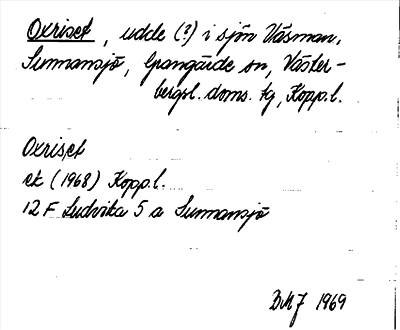 Oxriset, udde (?) i sjön Väsman,
Sunnansjö, Grangärde sn, Väster-
bergsl. doms. tg, Kopp.l.
Oxriset
ek (1968) Kopp.l.
12 F Ludvika 5 a Sunnansjö
BMJ 1969